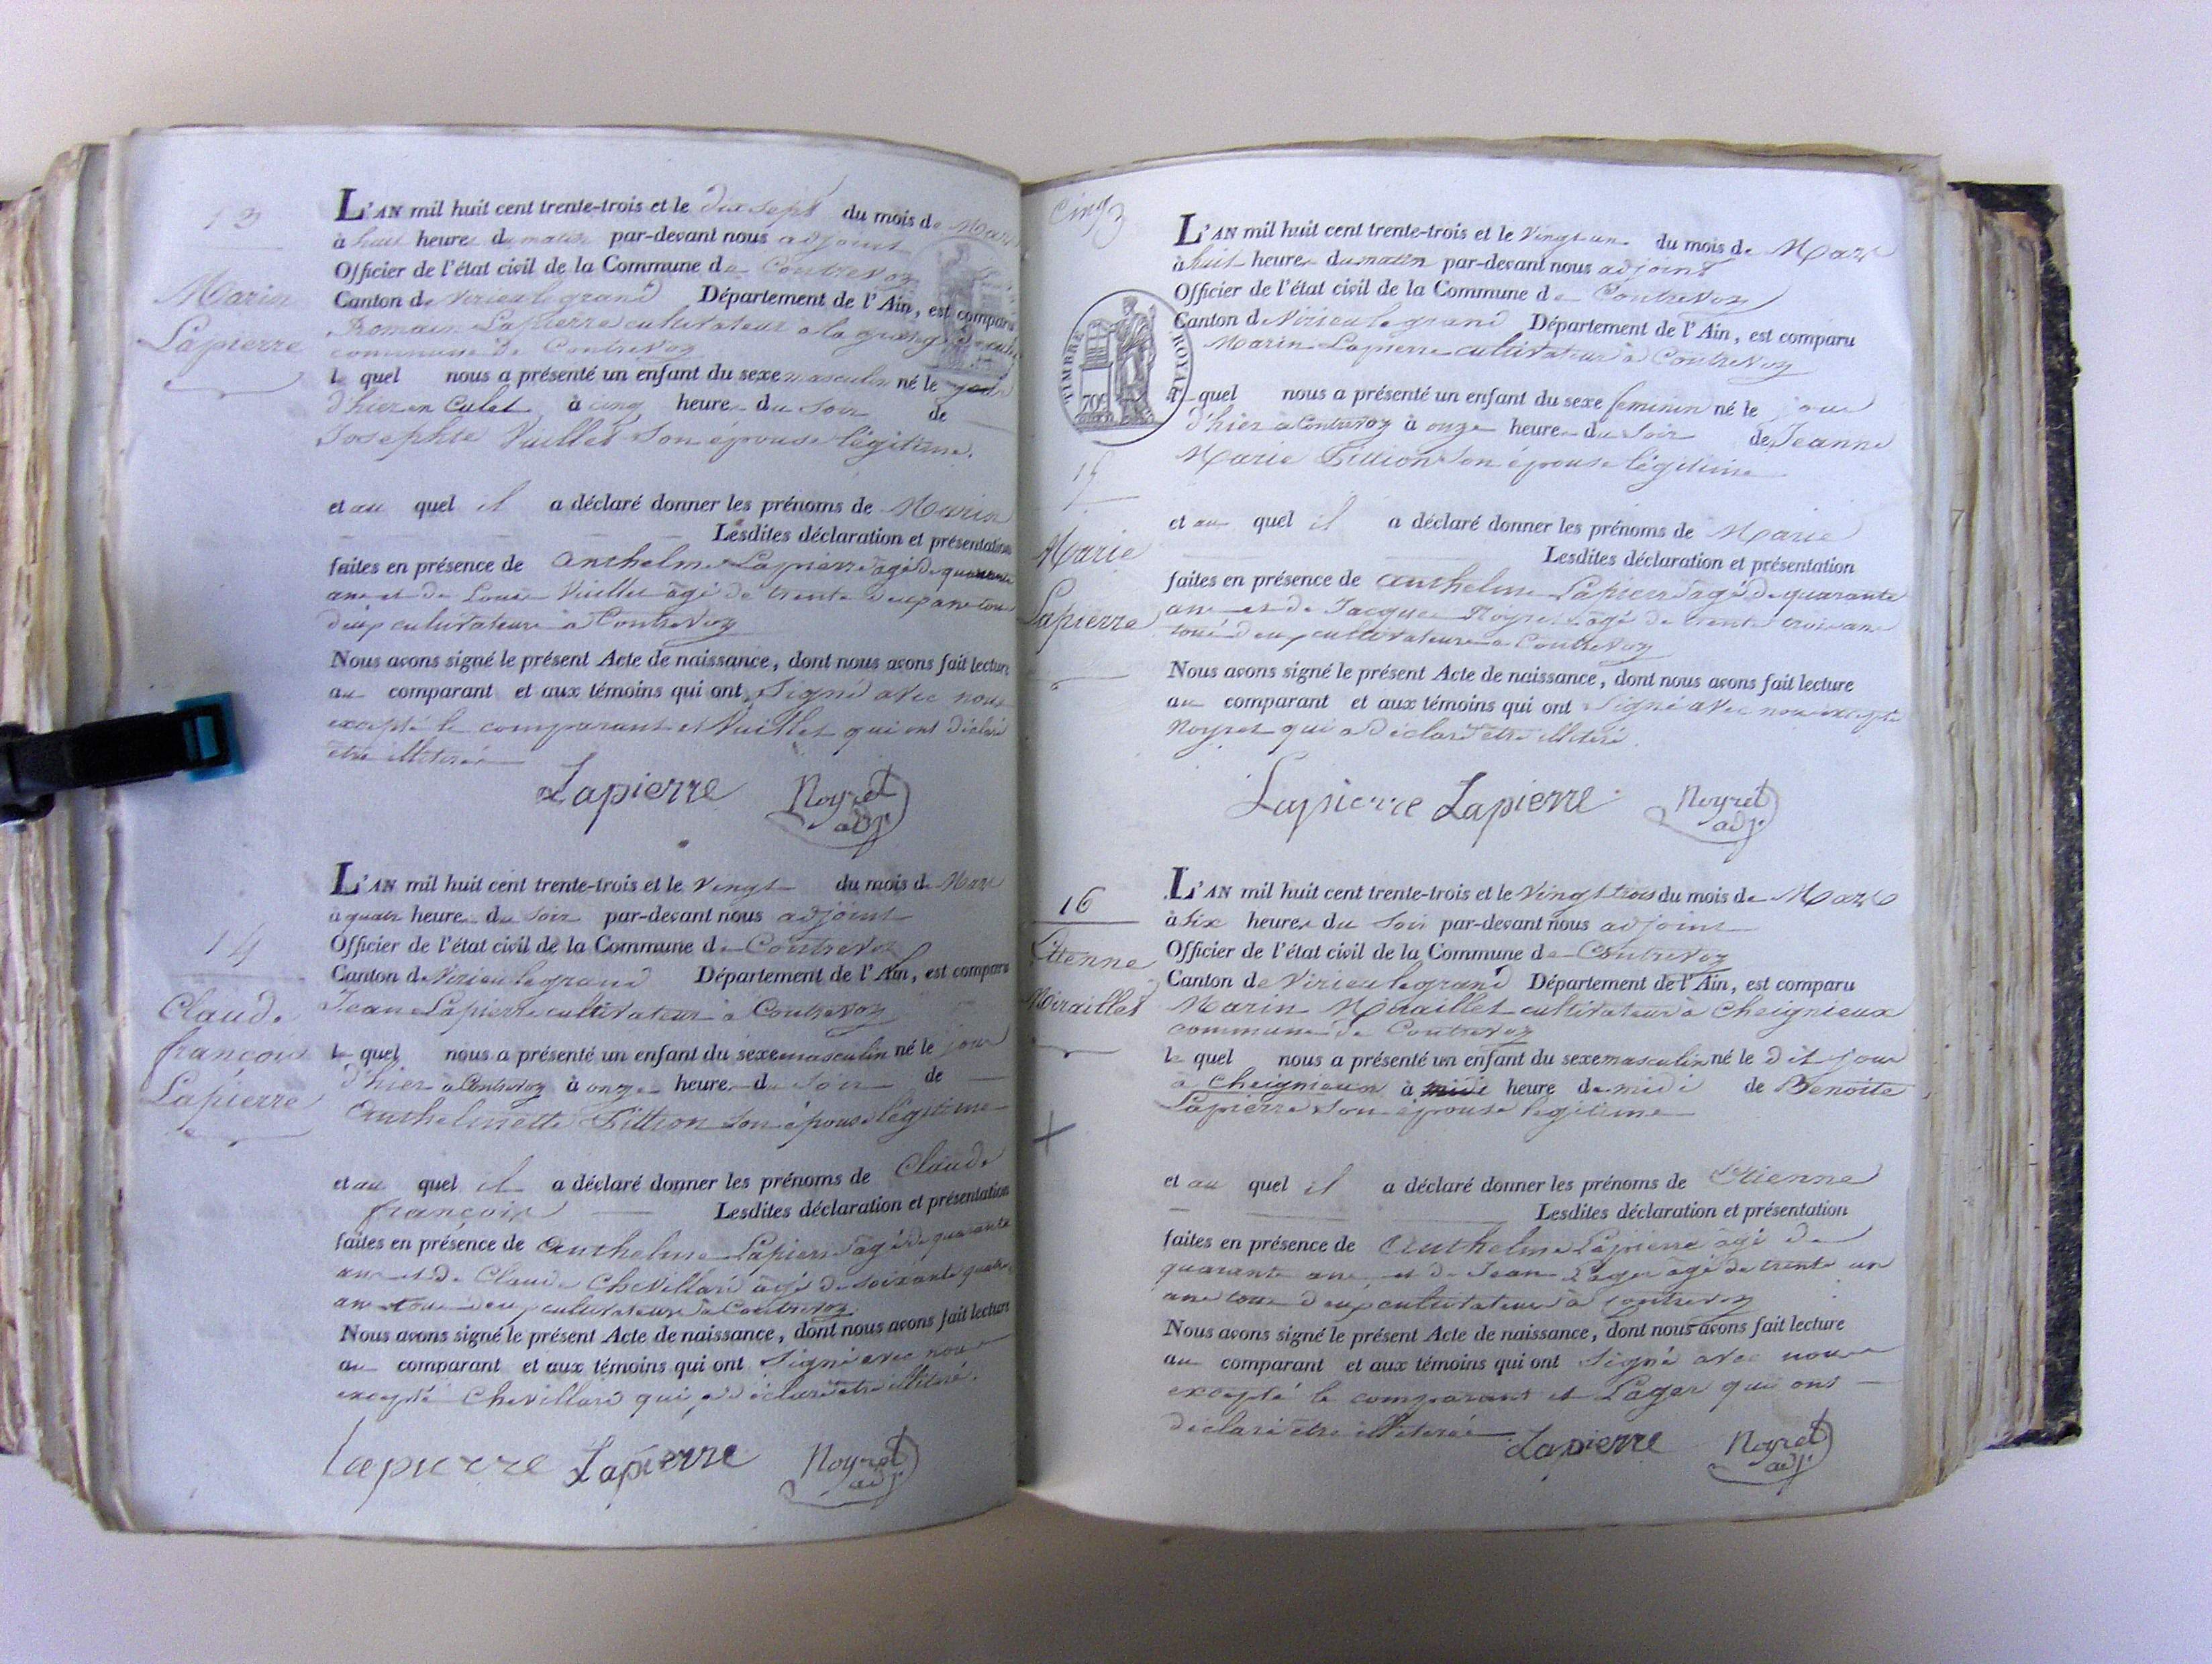 13
Marin
Lapierre
L'AN mil huit cent trente-trois et le dix sept du mois de Mars
à huit heures du matin par-devant nous adjoint
Officier de l'état civil de la Commune de Contrevoz
Canton de Virieu le grand Département de l'Ain, est comparu
Romain Lapierre cultivateur à la grange
commune de Contrevoz
le quel nous a présenté un enfant du sexe masculin né le jour
d'hier en Culet à cinq heures du soir de
Josephte Vuillet son épouse légitime.
et au quel il a déclaré donner les prénoms de Marin
Lesdites déclaration et présentation
faites en présence de Anthelme Lapierre agé de quarante
ans et de Louis Vuillet agé de trente deux ans tous
deux cultivateurs à Contrevoz
Nous avons signé le présent Acte de naissance, dont nous avons fait lecture
au comparant et aux témoins qui ont signé avec nous
excepté le comparant et Vuillet qui ont déclaré
être illiteré
Lapierre Noyret adj.
14
Claude
françois
Lapierre
L'AN mil huit cent trente-trois et le vingt du mois de Mars
à quatre heures du soir par-devant nous adjoint
Officier de l'état civil de la Commune de Contrevoz
Canton de Virieu le grand Département de l'Ain, est comparu
Jean Lapierre cultivateur à Contrevoz
le quel nous a présenté un enfant du sexe masculin né le jour
d'hier à Contrevoz à onze heures du soir de
Anthelmette Pittion son épouse légitime
et au quel il a déclaré donner les prénoms de Claude
françois Lesdites déclaration et présentation
faites en présence de Anthelme Lapierre agé de quarante
ans et de Claude Chevillard agé de soixante quatre
ans tous deux cultivateurs à Contrevoz
Nous avons signé le présent Acte de naissance, dont nous avons fait lecture
au comparant et aux témoins qui ont signé avec nous
excepté Chevillard qui a déclaré être illiteré.
Lapierre Lapierre Noyret adj.
Cinq
TIMBRE ROYAL
70c
15
Marie
Lapierre
L'AN mil huit cent trente-trois et le vingt un du mois de Mars
à huit heures du matin par-devant nous adjoint
Officier de l'état civil de la Commune de Contrevoz
Canton de Virieu le grand Département de l'Ain, est comparu
Marin Lapierre cultivateur à Contrevoz
le quel nous a présenté un enfant du sexe feminin né le jour
d'hier à Contrevoz à onze heures du soir de Jeanne
Marie Pittion son épouse légitime
et au quel il a déclaré donner les prénoms de Marie
Lesdites déclaration et présentation
faites en présence de Anthelme Lapierre agé de quarante
ans et de Jacques Noyret agé de trente trois ans
tous deux cultivateurs à Contrevoz
Nous avons signé le présent Acte de naissance, dont nous avons fait lecture
au comparant et aux témoins qui ont signé avec nous excepté
Noyret qui a déclaré être illiteré
Lapierre Lapierre Noyret adj.
16
Etienne
Miraillet
L'AN mil huit cent trente-trois et le vingt trois du mois de Mars
à six heures du soir par-devant nous adjoint
Officier de l'état civil de la Commune de Contrevoz
Canton de Virieu le grand Département de l'Ain, est comparu
Marin Miraillet cultivateur à Cheignieux
commune de Contrevoz
le quel nous a présenté un enfant du sexe masculin né le dit jour
à Cheignieux à midi heure de midi de Benoîte
Lapierre son épouse légitime
et au quel il a déclaré donner les prénoms de Etienne
Lesdites déclaration et présentation
faites en présence de Anthelme Lapierre agé de
quarante ans et de Jean Pager agé de trente un
ans tous deux cultivateurs à Contrevoz
Nous avons signé le présent Acte de naissance, dont nous avons fait lecture
au comparant et aux témoins qui ont signé avec nous
excepté le comparant et Pager qui ont
déclaré être illiteré
Lapierre Noyret adj.